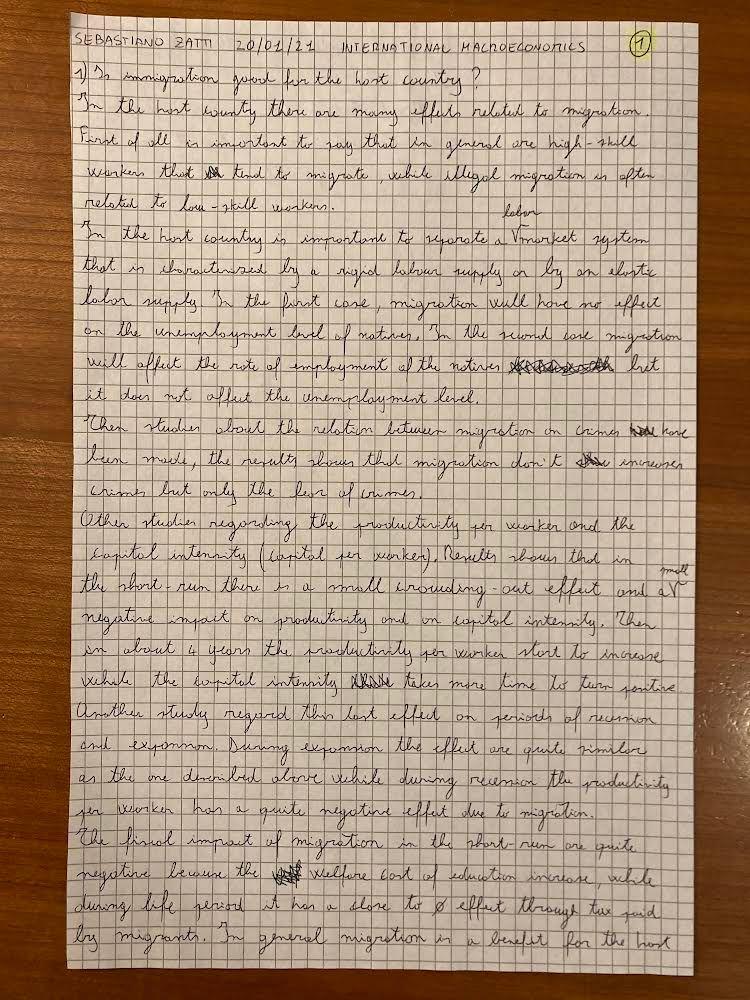 SEBASTIANO ZATTI 20/01/21 INTERNATIONAL MACROECONOMICS 1
1) Is immigration good for the host country?
In the host county there are many effects related to migration.
First of all is important to say that in general are high-skill
workers that tend to migrate, while illegal migration is often
related to low-skill workers.
labor
In the host country is important to separate a √market system
that is characterized by a rigid labour supply or by an elastic
labor supply. In the first case, migration will have no effect
on the unemployment level of natives. In the second case migration
will affect the rate of employment of the natives but
it does not affect the unemployment level.
Then studies about the relation between migration on crimes have
been made, the results shows that migration don't increases
crimes but only the fear of crimes.
Other studies regarding the productivity per worker and the
capital intensity (capital per worker). Results shows that in
small
the short-run there is a small crowding-out effect and a√
negative impact on productivity and on capital intensity. Then
in about 4 years the productivity per worker start to increase
while the capital intensity takes more time to turn positive.
Another study regard this last effect on periods of recession
and expansion. During expansion the effect are quite similar
as the one described above while during recession the productivity
per worker has a quite negative effect due to migration.
The fiscal impact of migration in the short-run are quite
negative because the welfare cost of education increase, while
during life period it has a close to ø effect through tax paid
by migrants. In general migration is a benefit for the host